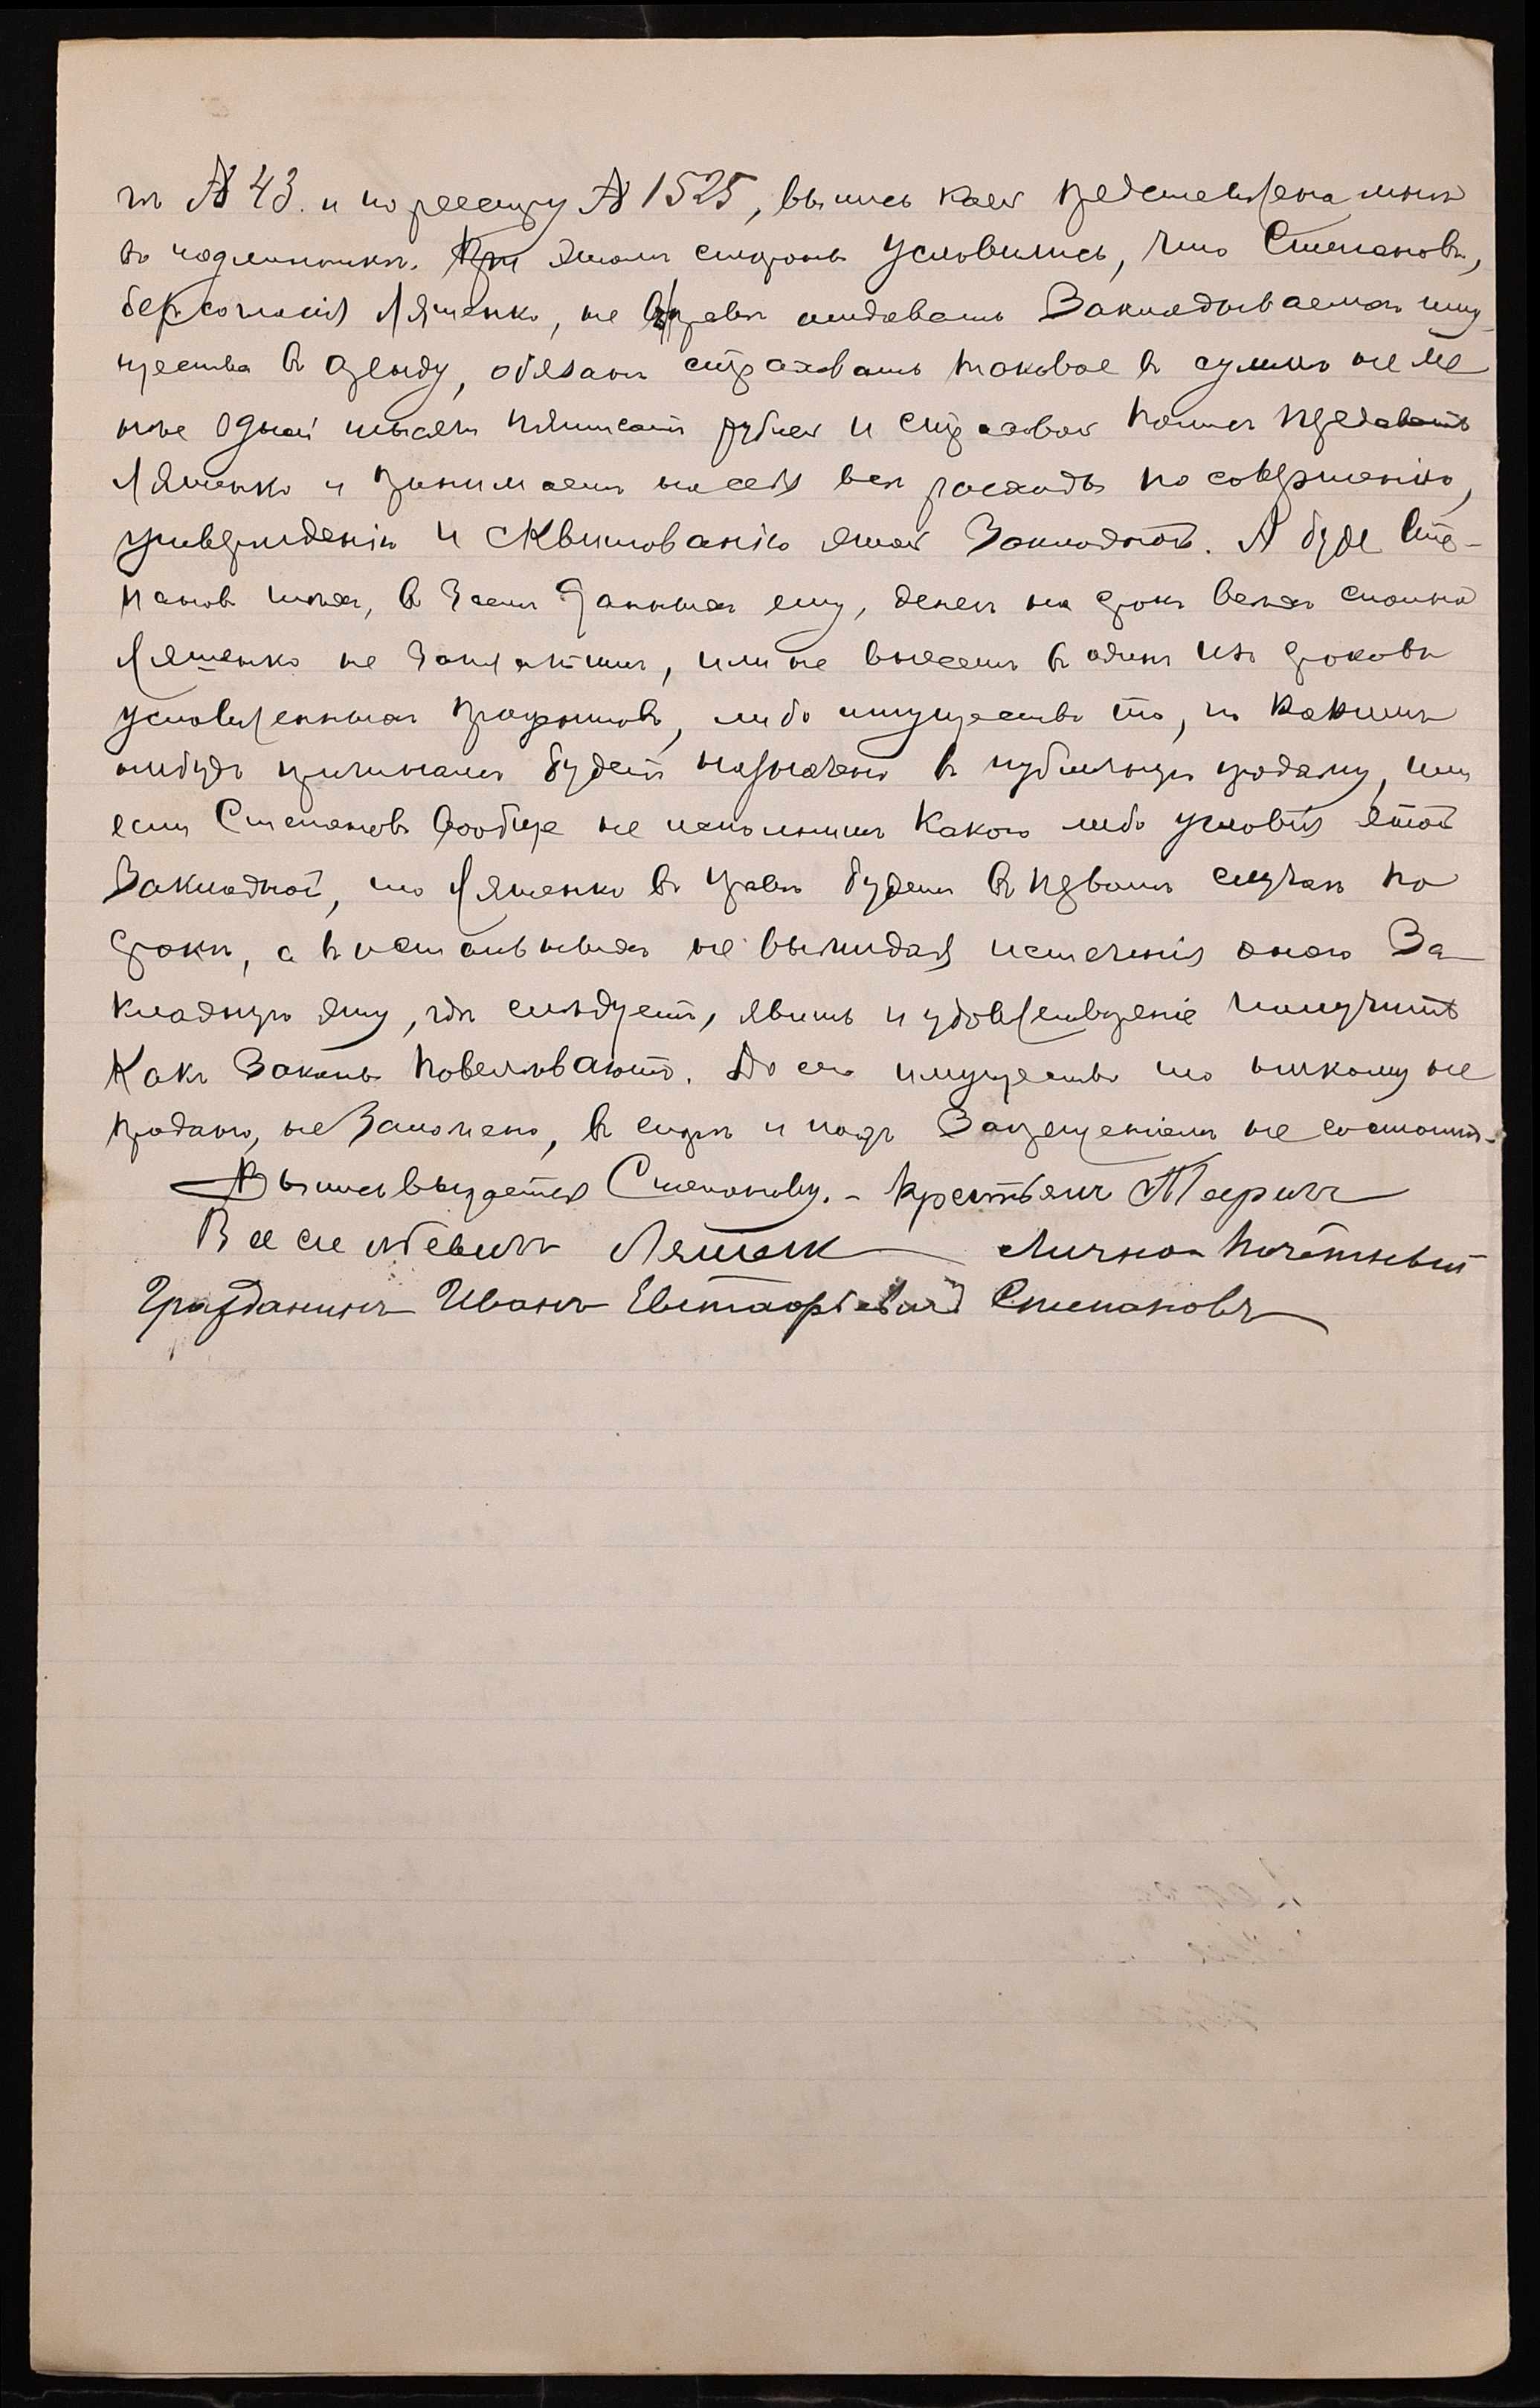 гъ № 43. и по реестру № 1525, выпись коей представлена мнѣ
въ подлинникѣ. При этомъ стороны условились, что Степановъ,
безъ согласія Ляшенко, не въ правѣ отдавать закладываемаго иму-
щества въ аренду, обязанъ страховать таковое въ суммѣ не ме
нѣе одной тысячи пятисотъ рублей и страховой полисъ предавать
Ляшенко и принимаетъ на себя всѣ расходы по совершенію,
утвержденію и сквитованію этой закладной. А буде Сте-
пановъ тѣхъ, въ заемъ данныхъ ему, денегъ на срокъ всѣхъ сполна
Ляшенко не заплатитъ, или не внесетъ въ одинъ изъ сроковъ
условленныхъ процентовъ, либо имущество то, по какимъ
нибудь причинамъ будетъ назначено въ публичную продажу, или
если Степановъ вообще не исполнитъ какого либо условія этой
закладной, то Ляшенко въ правѣ будетъ въ первомъ случаѣ по
срокѣ, а въ остальныхъ не выжидая истеченія онаго за
кладную эту, гдѣ слѣдуетъ, явить и удовлетвореніе получить
какъ законы повелѣваютъ. До сего имущество то никому не
продано, не заложено, въ спорѣ и подъ запрещеніемъ не состоитъ.
Выпись выдается Степанову. - Крестьянъ
Васильевичъ Ляшенк Личной Почётный
Гражданинъ Иванъ Евстафіевичъ Степановъ